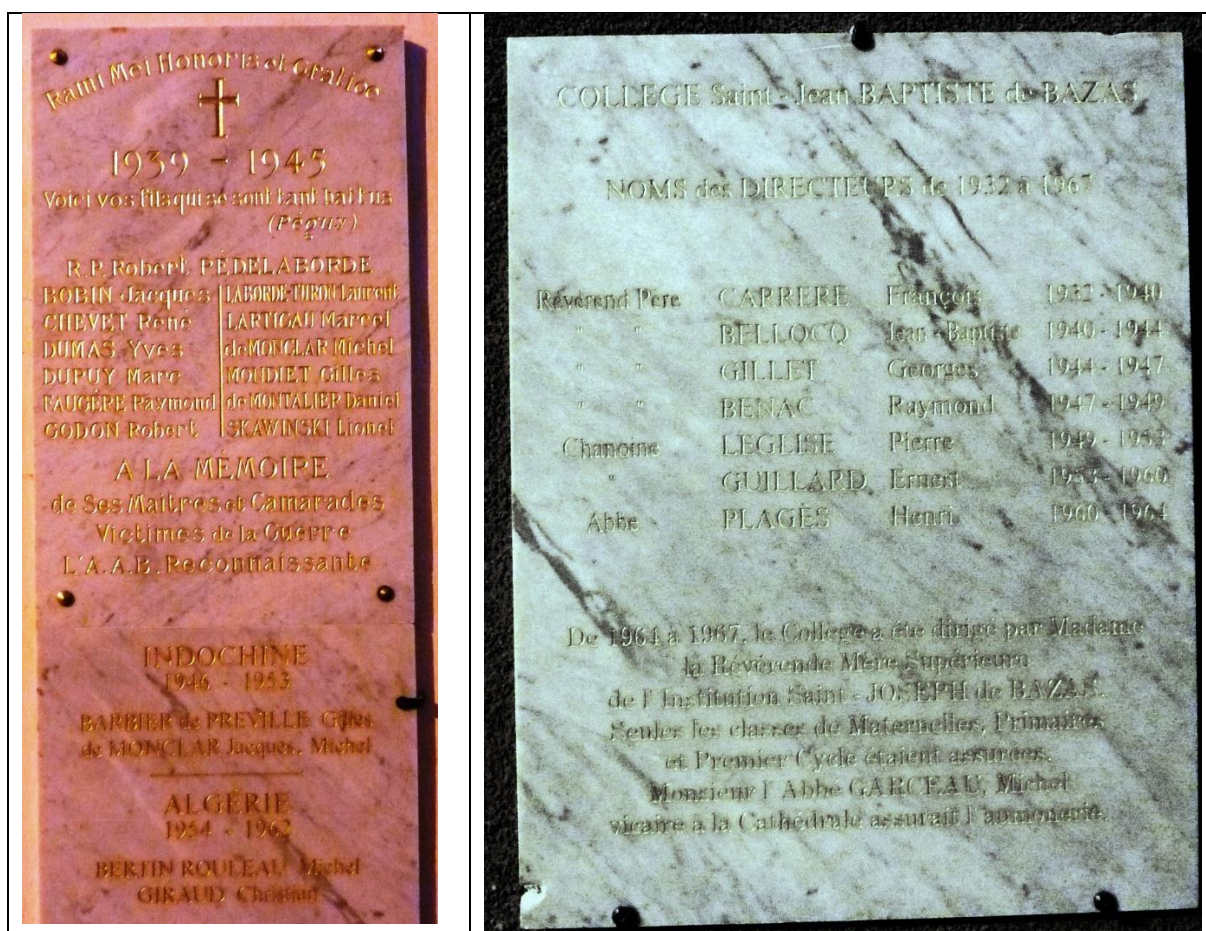 Rami Mei Honoris et Gratiae
1939 - 1945
Voici vos fils qui se sont tant battus
(Péguy)
R.P. Robert PÉDELABORDE
BOBIN Jacques
CHEVET René
DUMAS Yves
DUPUY Marc
FAUGÈRE Raymond
GODON Robert
LABORDE-TURON Laurent
LARTIGAU Marcel
de MONCLAR Michel
MONDIET Gilles
de MONTALIER Daniel
SKAWINSKI Lionel
A LA MÉMOIRE
de Ses Maitres et Camarades
Victimes de la Guerre
L'A.A.B. Reconnaissante
INDOCHINE
1946 - 1953
BARBIER de PREVILLE Gilles
de MONCLAR Jacques, Michel
ALGÉRIE
1954 - 1962
BERTIN ROULEAU Michel
GIRAUD Christian
COLLEGE Saint - Jean BAPTISTE de BAZAS
NOMS des DIRECTEURS de 1932 à 1967
Révérend Père CARRERE François 1932 - 1940
" " BELLOCQ Jean - Baptiste 1940 - 1944
" " GILLET Georges 1944 - 1947
" " BENAC Raymond 1947 - 1949
Chanoine LEGLISE Pierre 1949 - 1953
" GUILLARD Ernest 1953 - 1960
Abbé PLAGÈS Henri 1960 - 1964
De 1964 à 1967, le Collège a été dirigé par Madame
la Révérende Mère Supérieure
de l'Institution Saint - JOSEPH de BAZAS.
Seules les classes de Maternelles, Primaires
et Premier Cycle étaient assurées.
Monsieur l'Abbé GARCEAU, Michel
vicaire à la Cathédrale assurait l'aumonerie.